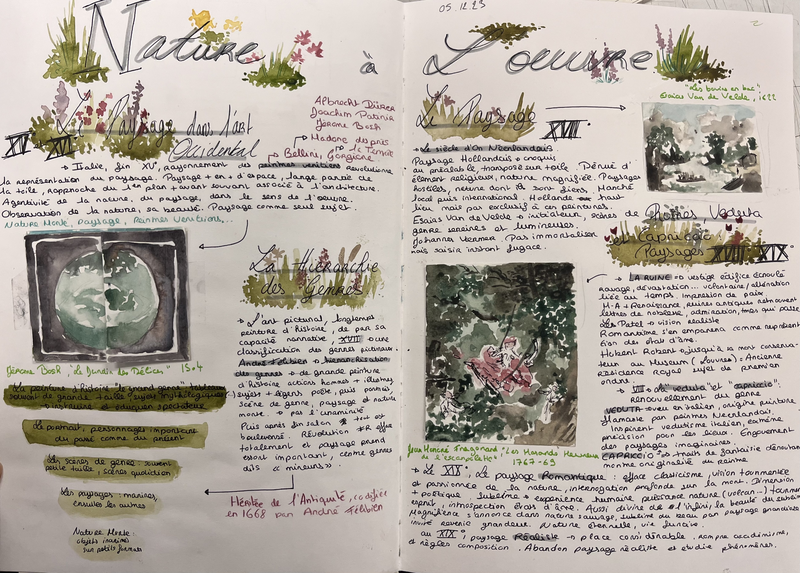 Nature à
Le Paysage dans l'art
Occidental
XVII
Albrecht Dürer
Joachim Patinir
Jérôme Bosh
Madone des prés
la Tempête
Bellini, Giorgione
→ Italie, fin XV, rayonnement des peintres vénitiens révolutionne
la représentation du paysage. Paysage + en + d'espace, large partie de
la toile, rapproche du 1er plan + avant souvent associé à l'architecture.
Agentivité de la nature, du paysage, dans le sens de l'oeuvre.
Observation de la nature, sa beauté. Paysage comme seul sujet
Nature Morte, paysage, Peintres Vénitiens...
La Hiérarchie
des Genres
→ L'art pictural, longtemps
peinture d'histoire, de par sa
capacité narrative, XVII → une
classification des genres picturaux
André Félibien → hiérarchisation
des genres → de grande peinture
d'histoire actions hommes + illustres
sujets + légers
Scène de genre, paysage et nature
morte. → pas l'unanimité
Puis après fin salon tout est
bouleversé. Révolution FR effet
totalement et paysage prend
essort important, comme genres
dits « mineurs ».
Jérôme Bosh, "le jardin des Délices" 1504
La peinture d'histoire "le grand genre"
souvent de grande taille, sujet mythologiques
historiens et éduquer spectateur
Le portrait, personnages importants
du passé comme du présent
Les scènes de genre: souvent
petite taille, scènes quotidien
Les paysages: marines,
ensuite les autres
Nature Morte:
objets inanimés
sur petits formats
Héritée de l'Antiquité, codifiée
en 1668 par André Félibien
05.12.23
2
L'oeuvre
Le Paysage
XVII
"Les bovins en bac",
Esaias Van de Velde, 1622
Le siècle d'Or Néerlandais
Paysage Hollandais → croquis
au préalable, transposé sur toile. Dénué d'
élément religieux, nature magnifiée. Paysages
hostiles, nature dt ils sont fiers. Marché
local puis international. Hollande haut
lieu mais pas exclusif à ces peintures.
Esaias Van de Velde → initiateur, scènes de
genre sereines et lumineuses.
Johannes Vermeer. Pas immortaliser
mais saisir instant fugace.
Ruines, Veduta
et Capriccio
Paysages XVIII XIX
→ LA RUINE → vestige édifice écroulé
ravage, dévastation... volontaire / altération
liée au temps. Impression de paix
M-A + Renaissance, ruines antiques retrouvent
lettres de noblesse, admiration, mais qui passe.
Les Patel → vision réaliste
Romantisme s'en emparera comme représent
tion des états d'âme.
Hubert Robert → jusqu'à sa mort conserva-
teur au Museum (Louvre) : Ancienne
Résidence Royal sujet de premier
ordre.
XVIII → "veduta" et "capriccio":
renouvellement du genre
VEDUTA → vue en italien, origine peinture
flamande par peintres Néerlandais.
Inspirent vedutisme italien, extrême
précision pour les lieux. Engouement
des paysages imaginaires.
CAPRICCIO → traits de fantaisie
montre originalité du peintre
Jean Honoré Fragonard "Les Hasards Heureux
de l'escarpolette"
1767-69
→ Le XIX, le paysage Romantique: efface classicisme, vision tourmentée
et passionnée de la nature, interrogation profonde sur le mont. Dimension
+ poétique, sublime → expérience humaine puissance nature (volcan...)
esprit, introspection états d'âme. Aussi divine de l'infini, la beauté du sublime
Magnificence s'annonce dans nature sauvage, sublime du beau par paysage grandiose
invite revenir grandeur. Nature éternelle, vie
au XIX, paysage Réaliste → place considérable. rompre académisme,
et règles composition. Abandon paysage réaliste et étudie phénomènes.